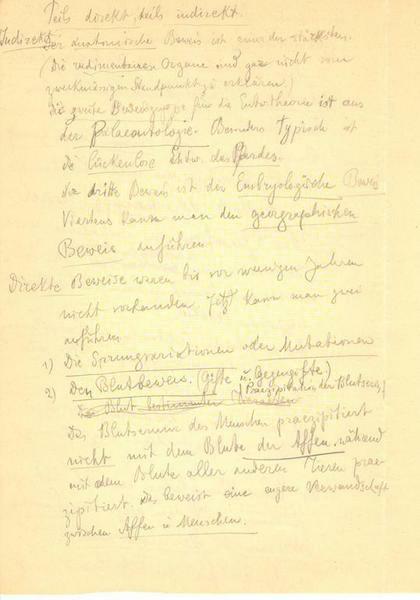 Teils direkt, teils indirekt.
Indirekt: Der anatomische Beweis ist einer der stärksten.
(Die rudimentären Organe sind gar nicht vom
zweckmässigen Standpunkt zu erklären.)
Die zweite Beweisgruppe für die Entw.theorie ist aus
der Palaeontologie. Besonders typisch ist
die lückenlose Entw. des Pferdes.
Der dritte Beweis ist der Embryologische Beweis
Viertens kann man den geographischen
Beweis anführen.
Direkte Beweise waren bis vor wenigen Jahren
nicht vorhanden. Jetzt kann man zwei
anführen.
1) Die Sprungvariationen oder Mutationen
2) Den Blutbeweis. (Gifte u. Gegengifte.)
(Präzipitation des Blutserums)
Das Blut bestimmter
Das Blutserum des Menschen praezipitiert
nicht mit dem Blute der Affen, während
mit dem Blute aller anderen Tieren prae-
zipitiert. Das beweist eine engere Verwandschaft
zwischen Affen u. Menschen.